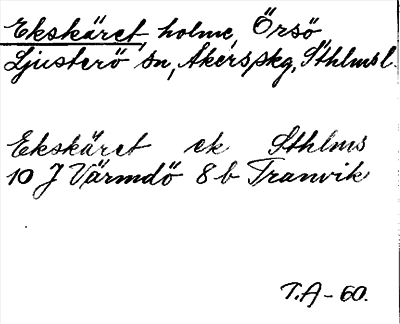 Ekskäret, holme, Örsö,
Ljusterö sn, Åkers skg, Sthlms l.
Ekskäret ek Sthlms
10 J Värmdö 8 b Tranvik
T.A - 60.